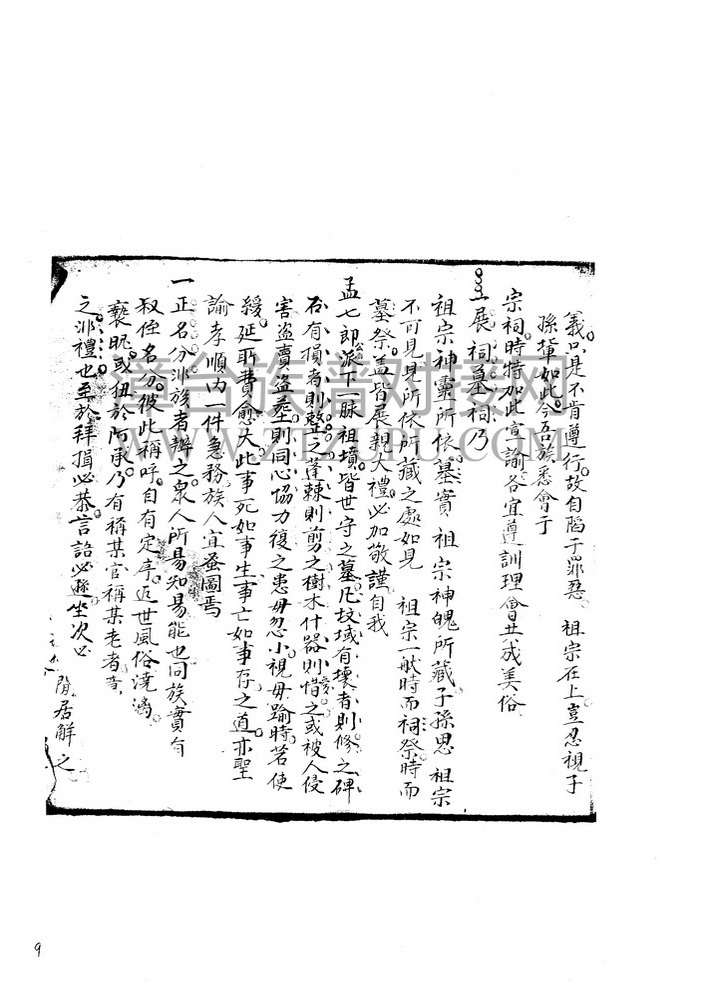 義只是不肯遵行。故自陷于罪惡。祖宗在上豈忍視子
孫輩如此今吾族悉會于
宗祠。時特加此宣諭各宜遵訓理會共成美俗
一展祠墓祠乃
祖宗神靈所依。墓實祖宗神魄所藏子孫思祖宗
不可見見所依所藏之處如見祖宗一般時而祠祭。時而
墓祭。蓋皆展親大禮必加敬謹自我
孟七郎公派下一脉祖墳。皆世守之墓。凡坟域有壞者則修之碑
石有損者則整之蓬棘則剪之樹木什器則惜之或被人侵
害盜賣盜葬則同心協力復之患毋忽小視毋踰時若使
緩延耶費愈大。此事死如事生事亡如事存。之道。亦聖
諭孝順内一件急務族人宜蚤圖焉
一正名分沠族者辨之。衆人所易知易能也同族實有
叔侄名分。彼此稱呼。自有定序。近世風俗澆漓。
褻昵。或狃於阿承乃有稱某官稱某老者
之沠禮也至於拜揖必恭。言語必遜坐次必
居解之
漳台族谱对接网
WWW.ZTZUPU.COM
9